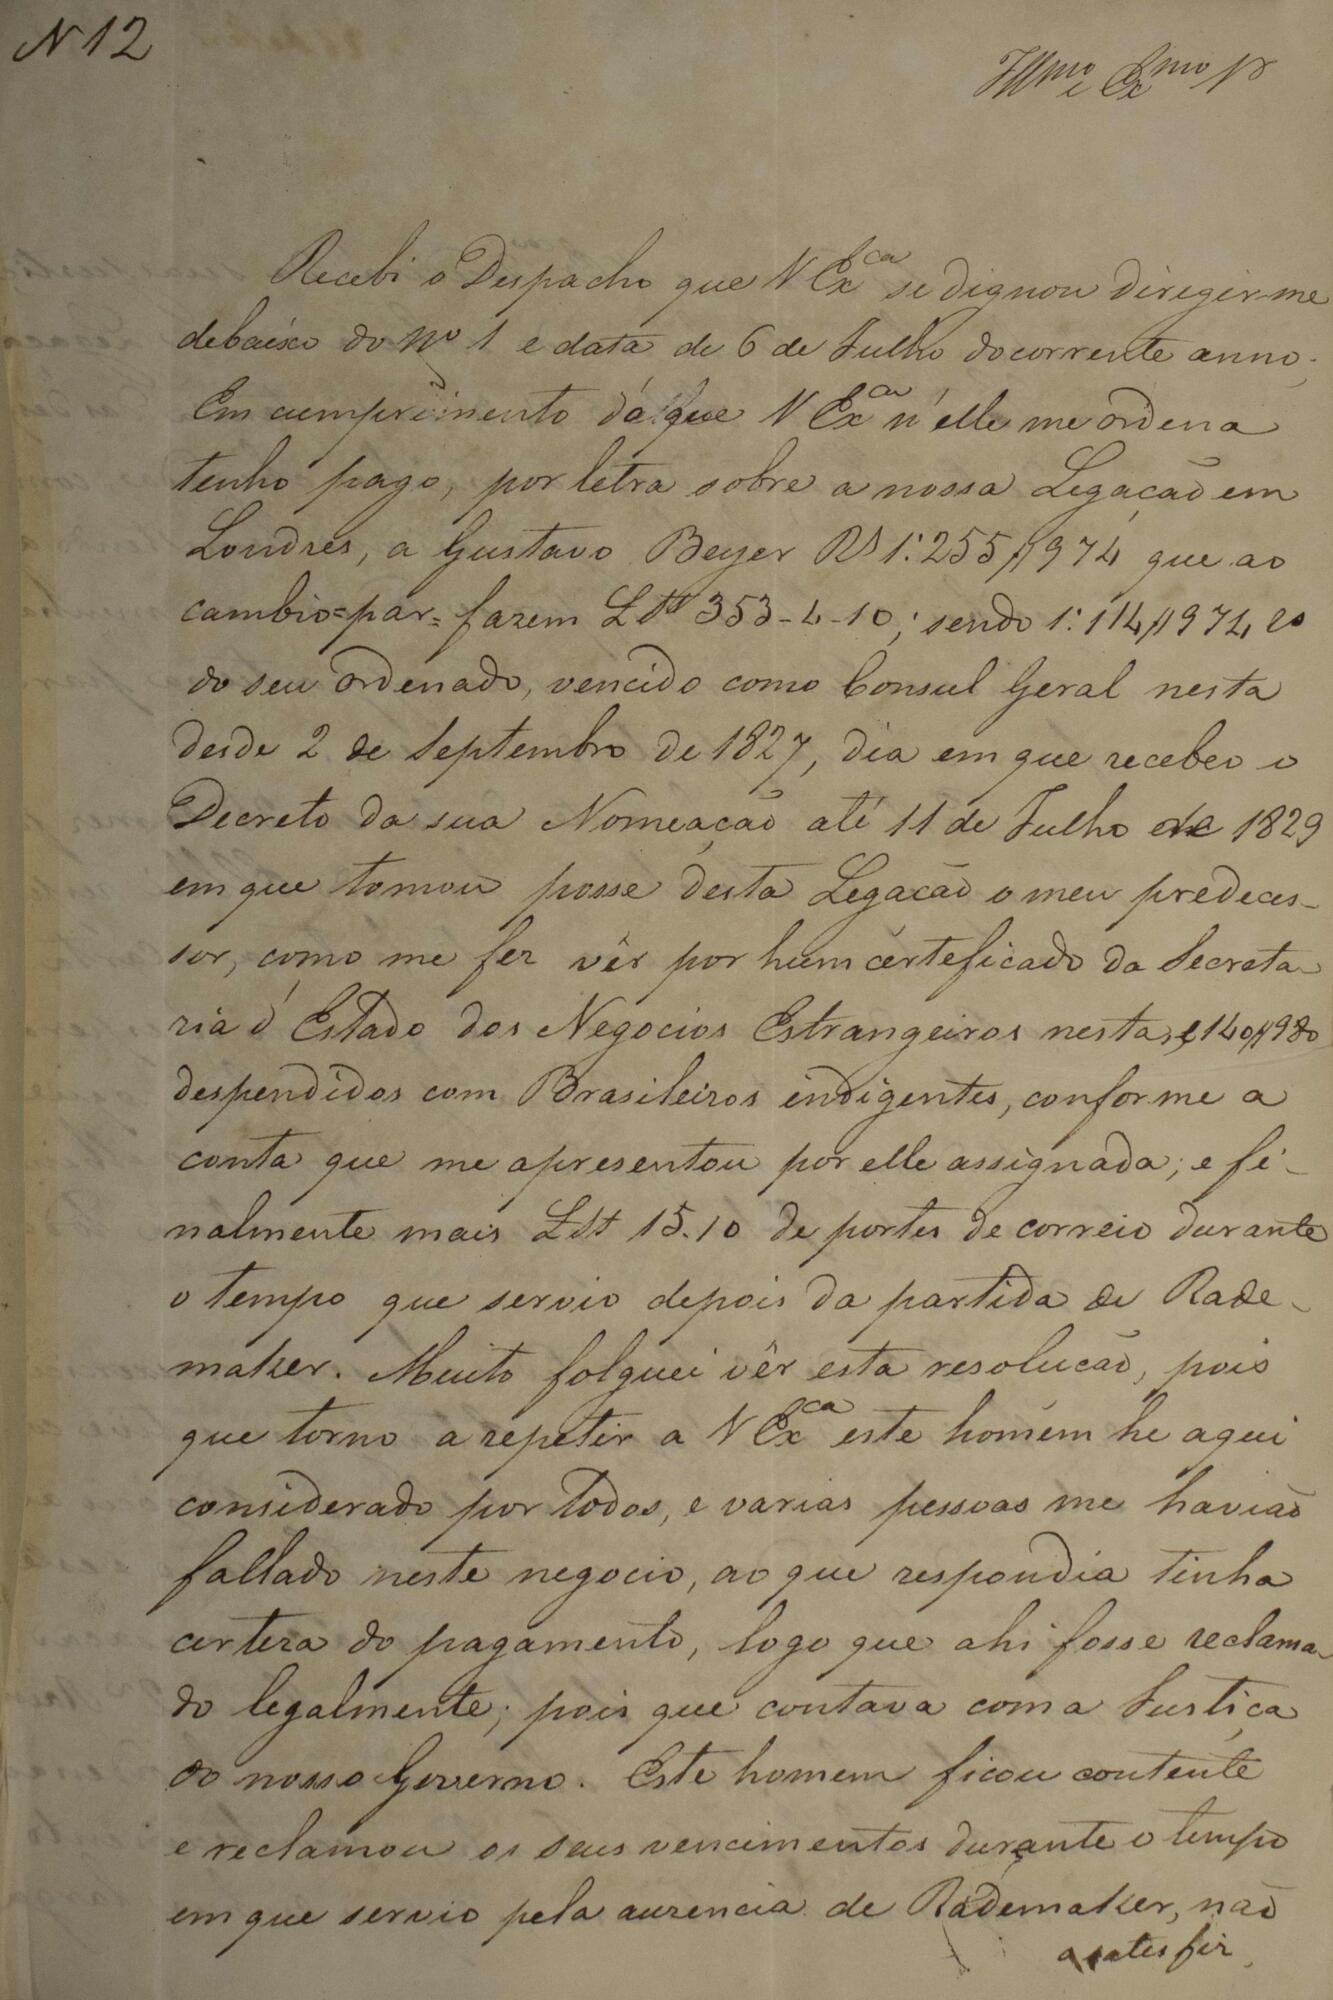 N 12
Illmo e Exmo Sr
Recebi o Despacho que V Exca se dignou diregir-me
debaixo do No 1 e data de 6 de Julho do corrente anno.
Em cumprimento do que V Exca n'elle me ordena
tenho pago, por letra sobre a nossa Legação em
Londres, a Gustavo Beyer Rs 1:255$974 que ao
cambio=par= fazem L St 353-4-10; sendo 1:114$974 rs
do seu ordenado, vencido como Consul Geral nesta
desde 2 de Septembro de 1827, dia em que recebeo o
Decreto da sua Nomeação até 11 de Julho de 1829
em que tomou posse desta Legação o meu predeces-
sor, como me fez vêr por hum certeficado da Secreta-
ria d'Estado dos Negocios Estrangeiros nesta, e 140$980
despendidos com Brasileiros indigentes, conforme a
conta que me apresentou por elle assignada; e fi-
nalmente mais L St 15.10 de portes de correio durante
o tempo que servio depois da partida de Rade-
maker. Muito folguei vêr esta resolucão, pois
que torno a repetir a V Exca este homem he aqui
considerado por todos, e varias pessoas me havião
fallado neste negocio, ao que respondia tinha
certeza do pagamento, logo que ahi fosse reclama-
do legalmente; pois que contava com a Justiça
do nosso Governo. Este homem ficou contente
e reclamou os seus vencimentos durante o tempo
em que servio pela auzencia de Rademaker, não
a satisfiz